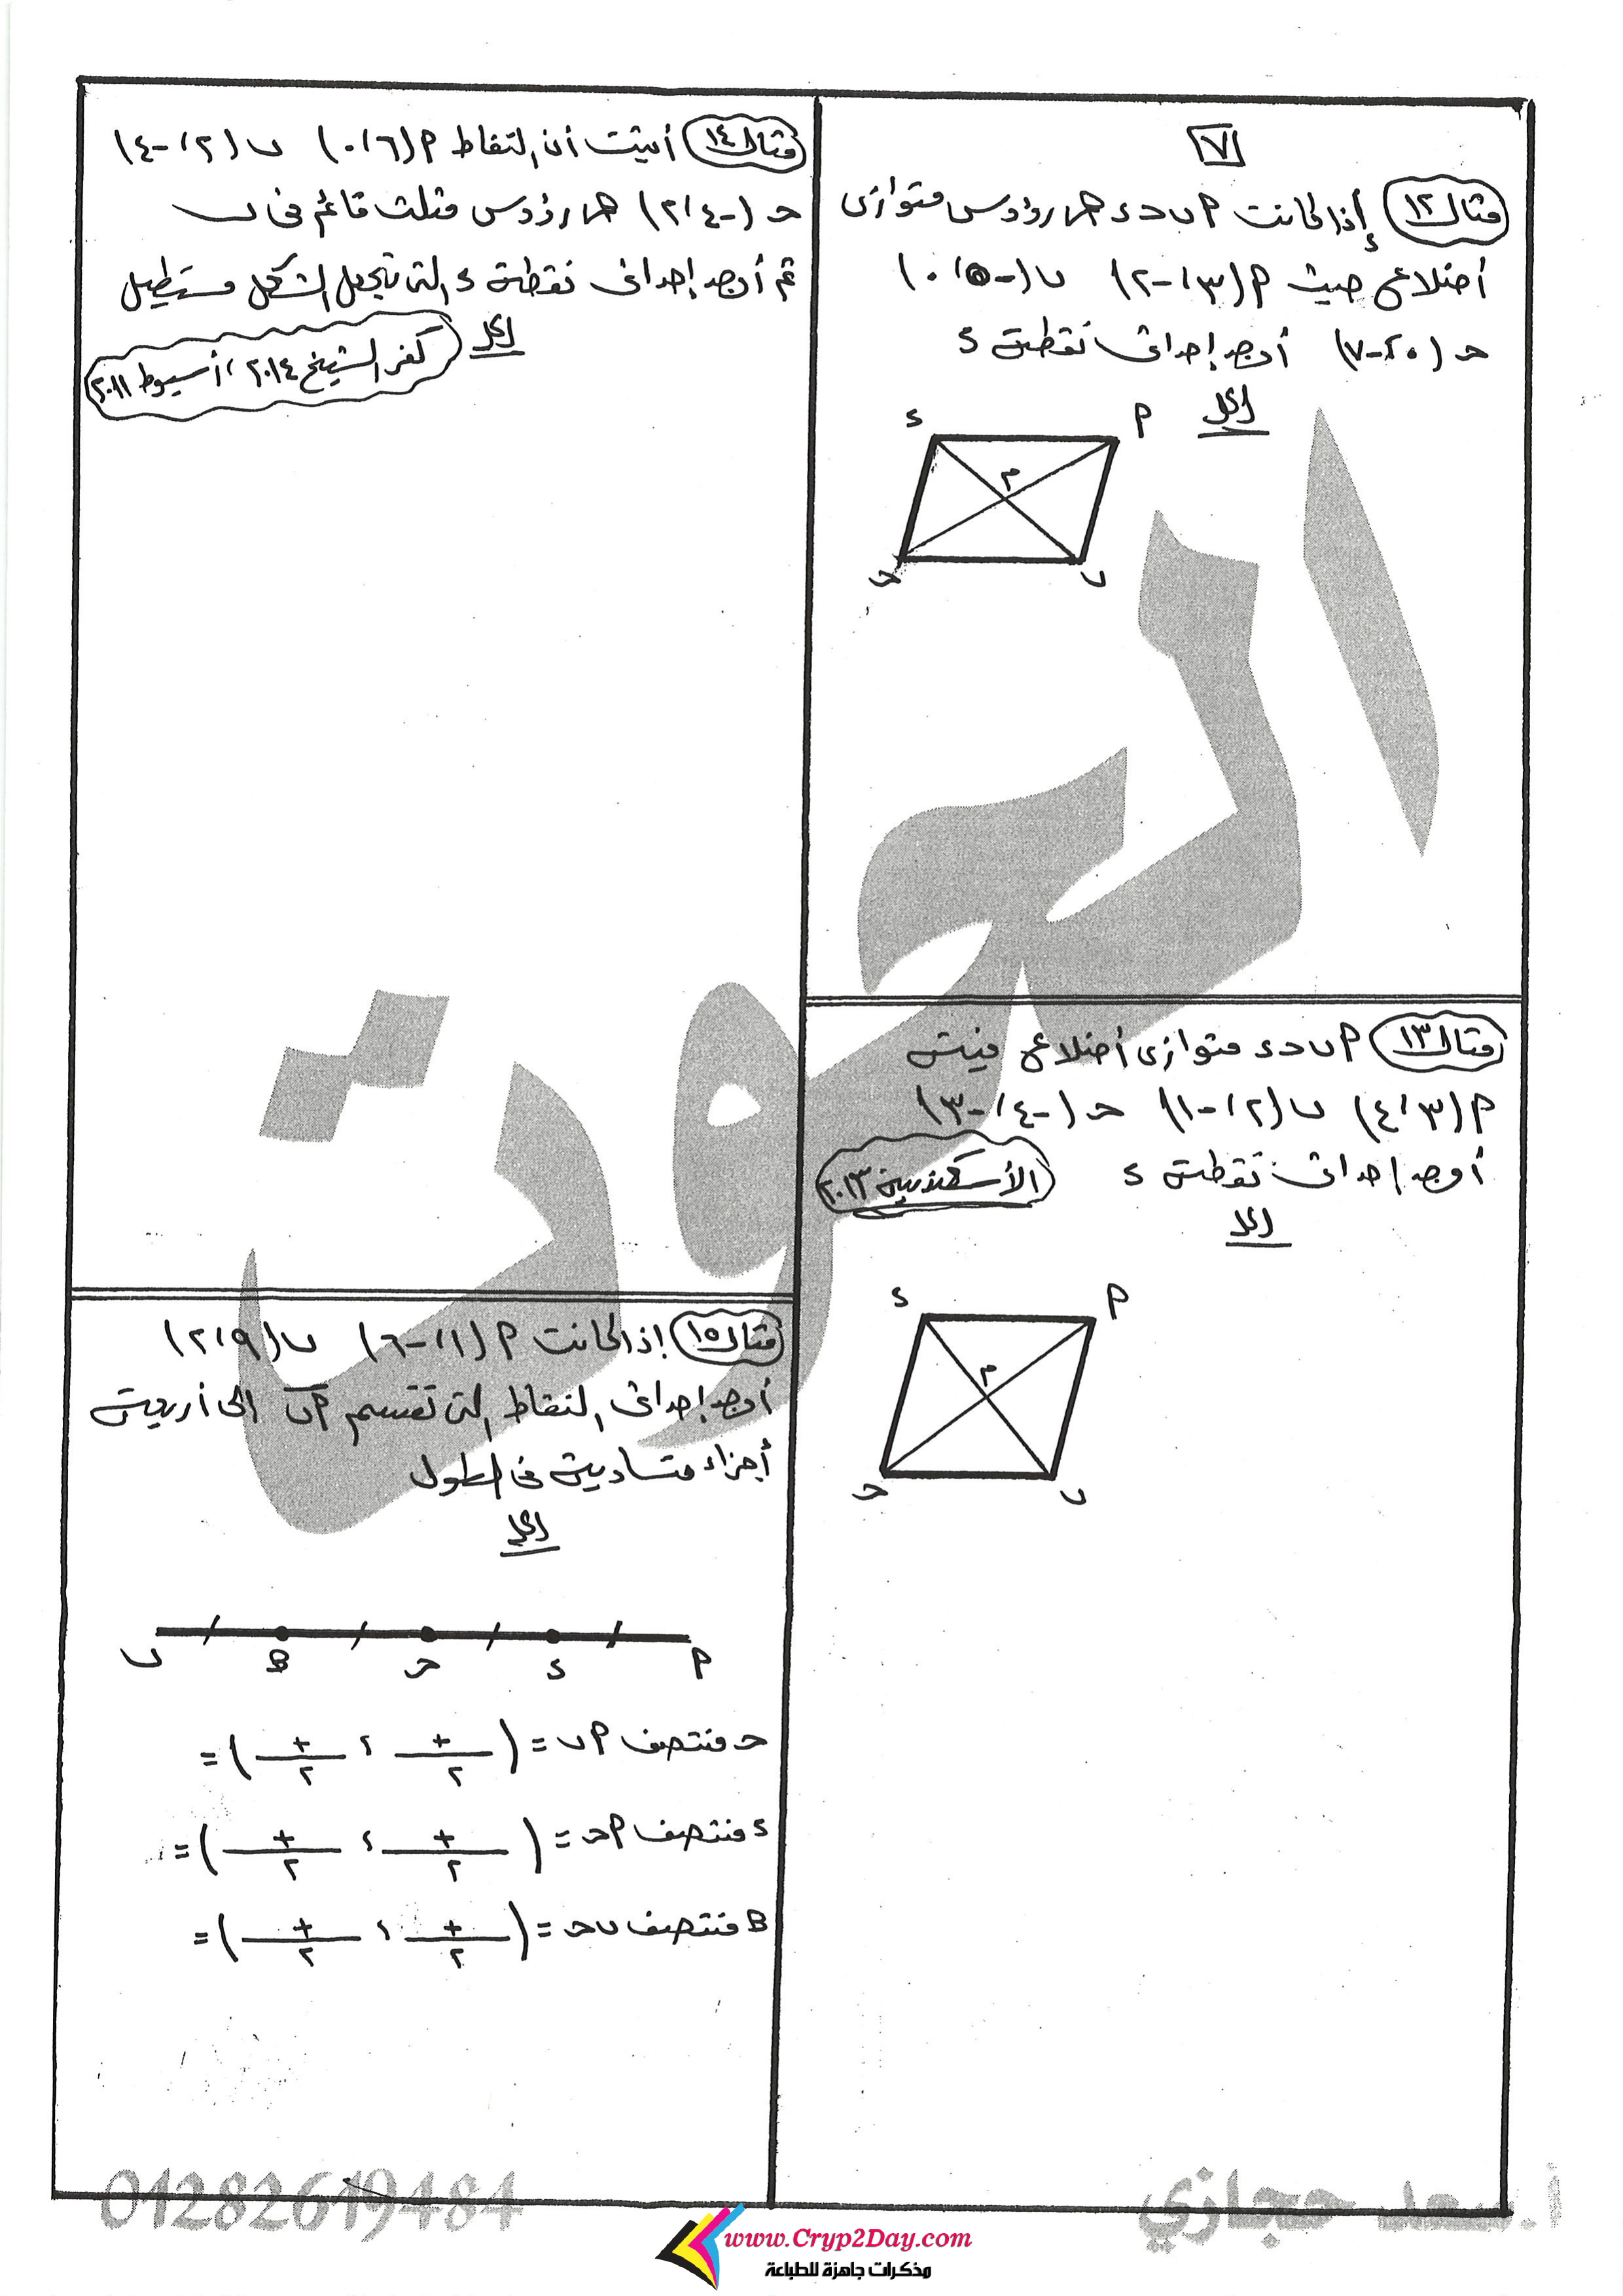 ٧
مثال ١٢ إذا كانت أ ب ح ء هى رؤوس متوازى
أضلاع حيث أ (٣ ، -٢) ب (-٥ ، ٠)
ح (٠ ، -٧) أوجد إحداثى نقطة ء
الحل
ء أ
م
ح ب
مثال ١٣ أ ب ح ء متوازى أضلاع فيه
أ (٣ ، ٤) ب (٢ ، -١) ح (-٤ ، -٣)
أوجد إحداثى نقطة ء الأسكندرية ٢٠١٣
الحل
ء أ
م
ح ب
مثال ١٤ أثبت أن النقاط أ (٦ ، ٠) ب (٢ ، -٤)
ح (-٤ ، ٢) هى رؤوس مثلث قائم فى ب
ثم أوجد إحداثى نقطة ء التى تجعل الشكل مستطيل
الحل كفر الشيخ ٢٠١٤ ، أسيوط ٢٠١١
مثال ١٥ إذا كانت أ (١ ، -٦) ب (٩ ، ٢)
أوجد إحداثى النقاط التى تقسم أب إلى أربعة
أجزاء متساوية فى الطول
الحل
أ ء ح B ب
ح منتصف أب = ( +/٢ ، +/٢ ) =
ء منتصف أح = ( +/٢ ، +/٢ ) =
B منتصف ب ح = ( +/٢ ، +/٢ ) =
أ.سعد حجازي
01282619484
www.Cryp2Day.com
مذكرات جاهزة للطباعة